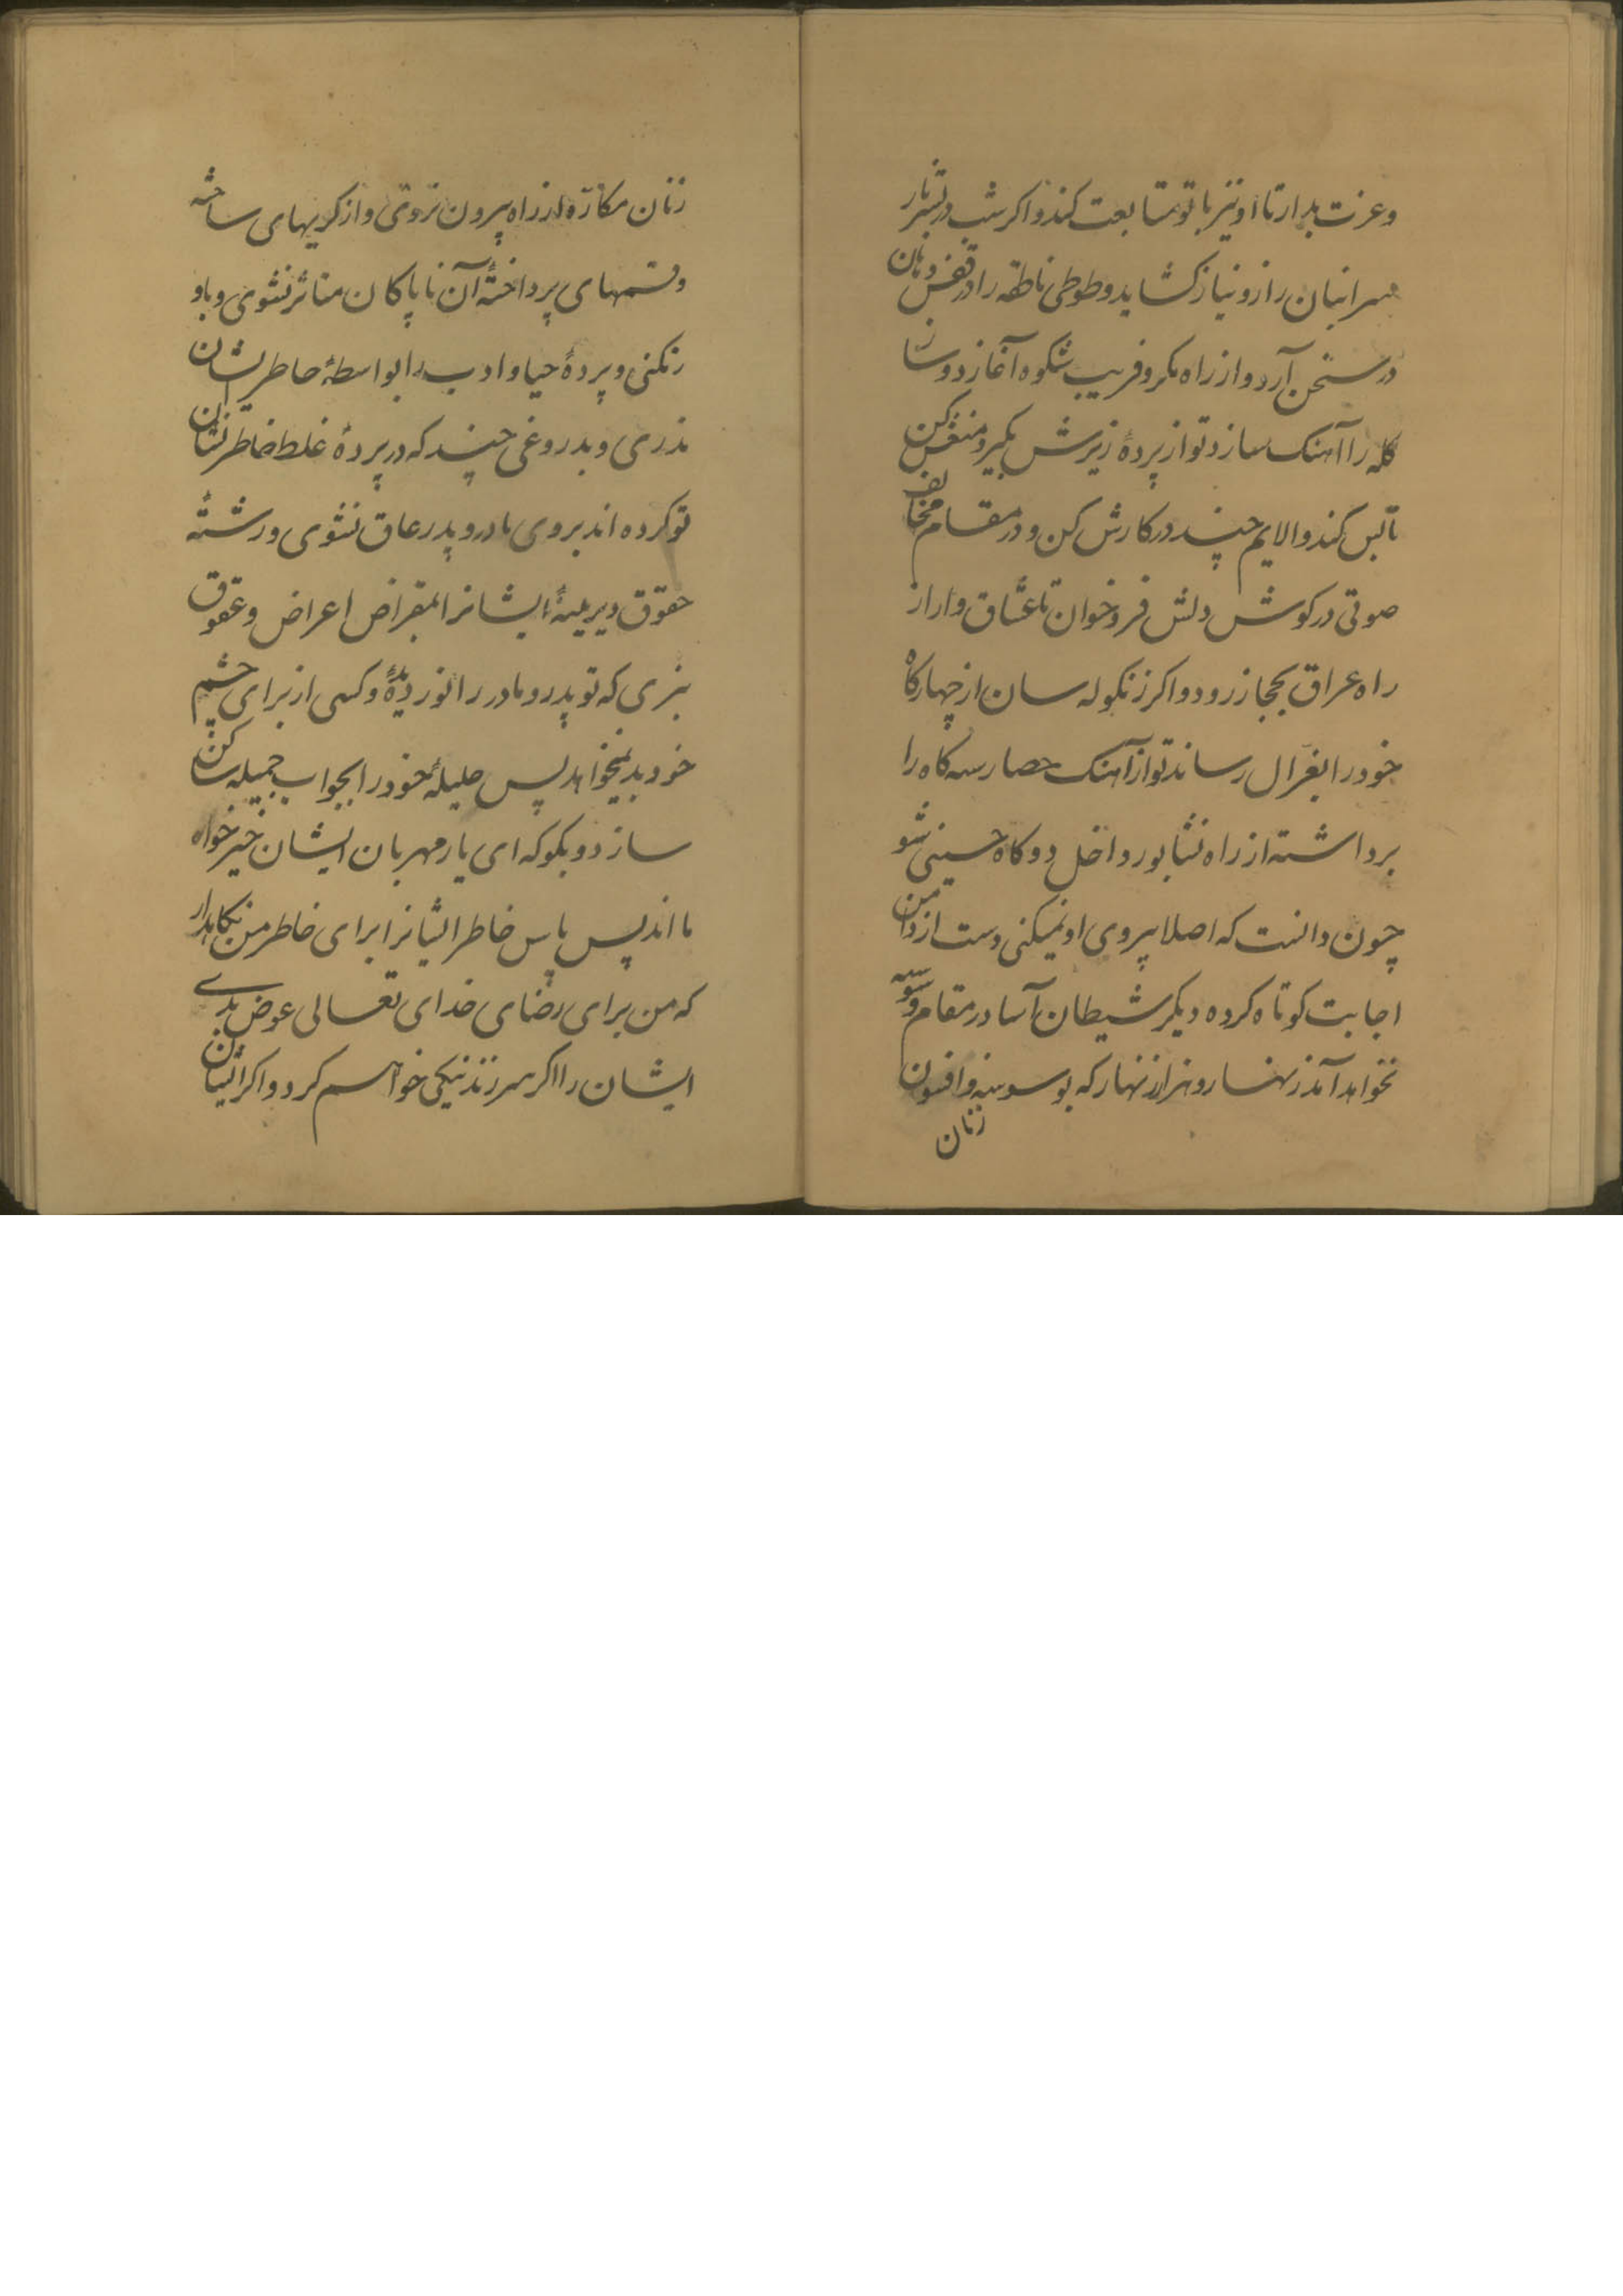 وعزت بدار تا او نیز با تو متابعت کند و اکر شب در بستر ناز
سر انبان راز و نیاز کشاید و طوطی ناطقه را در قفس دهان
در سخن آرد و از راه مکر و فریب شکوه آغازد و ساز
کله را آهنک سازد تو از پرده زیرش بکیر و منغص کن
تا لبس کند والا بم چند در کارش کن و در مقام مخالف
صوتی در کوش دلش فرو خوان تا عشاق وار از
راه عراق بحجاز رود و اکر زنکوله سان از چهارکاه
خود را بغزال رساند تو از آهنک حصار سه کاه را
برداشته از راه نشابور داخل دوکاه حسینی شو
چون دانست که اصلا پیروی او نمیکنی دست از دامن
اجابت کوتاه کرده دیکر شیطان آسا در مقام وسوسه
نخواهد آمد زنهار و هزار زنهار که بوسوسه و افسون
زنان
زنان مکاره از راه بیرون نروی و از کریهای ساخته
وقسمهای پرداختهٔ آن ناپاکان متاثر نشوی و باور
نکنی و پردهٔ حیا و ادب را بواسطهٔ خاطر ایشان
ندری و بدروغی چند که در پردهٔ غلط خاطر نشان
تو کرده اند بروی مادر و پدر عاق نشوی و رشتهٔ
حقوق دیرینهٔ ایشانرا بمقراض اعراض و عقوق
نبری که تو پدر و مادر را نور دیدهٔ و کسی از برای چشم
خود بد نمیخواهد پس حلیلهٔ خود را بجواب جمیله ساکن
سازد و بکو که ای یار مهربان ایشان خیر خواه
ما اند پس پاس خاطر ایشانرا برای خاطر من نکاهدار
که من برای رضای خدای تعالی عوض بدی
ایشان را اکر سر زند نیکی خواهم کرد و اکر ایشان